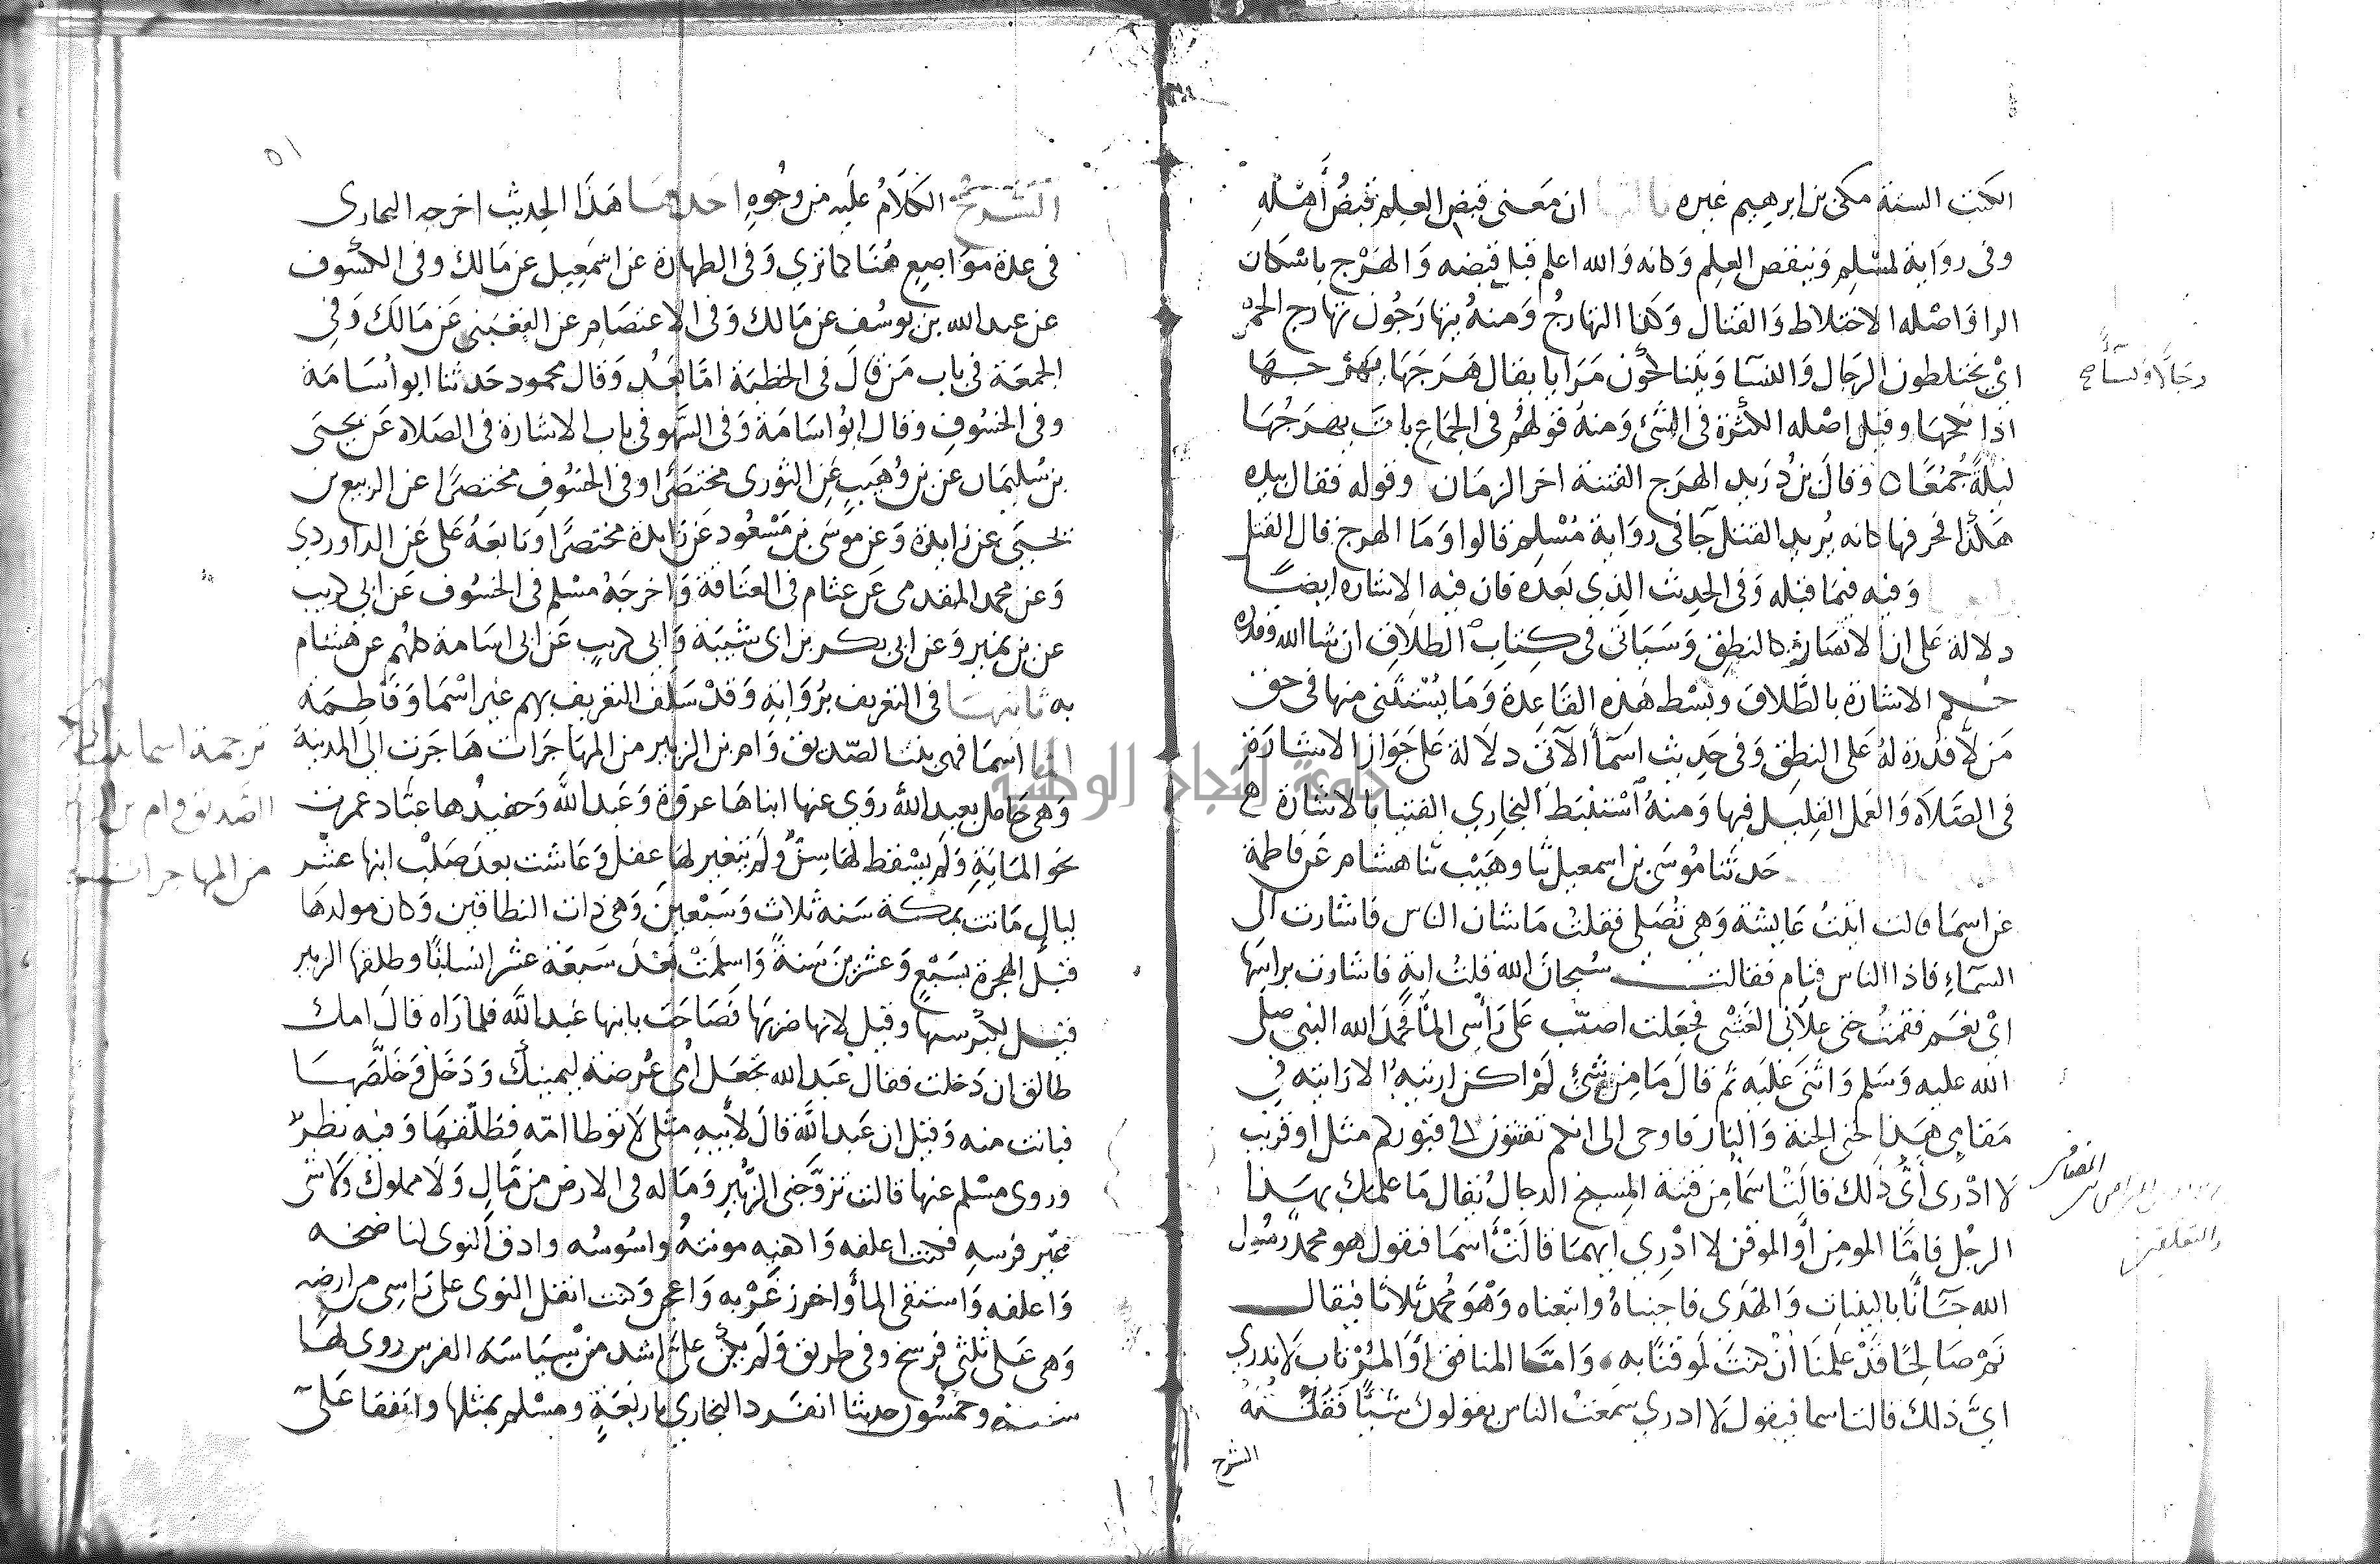 الكتب الستة مكي بن ابرهيم غيره ثالثها ان معنى قبض العلم قبض أهله
وفي رواية لمسلم وينقص العلم وكانه والله اعلم قبل قبضه والهرج باسكان
الرا واصله الاختلاط والقتال وكذا التهارج ومنه يتهارجون تهارج الحمر
اي يختلطون الرجال والنسا ويتناكحون مزايا يقال هرجها يهرجها
اذا نكحها وقيل اصله الكثرة في الشئ ومنه قولهم في الجماع بات يهرجها
ليلة جمعا ٥ وقال بن دريد الهرج الفتنة اخر الزمان وقوله فقال بيده
هكذا فحرفها كانه يريد القتل جا في رواية مسلم قالوا وما الهرج قال القتل
وفيه فيما قبله وفي الحديث الذي بعده فان فيه الاشاره ايضا
دلالة على ان الاشارة كالنطق وسياتي في كتاب الطلاق ان شا الله وقدره
حكم الاشارة بالطلاق وبسط هذه القاعدة وما يستثنى منها في حق
من لا قدرة له على النطق وفي حديث اسمأ الآتي دلالة على جواز الاشارة
في الصلاة والعمل القليل فيها ومنه استنبط البخاري الفتيا بالاشارة
حدثنا موسى بن اسمعيل ثنا وهيب ثنا هشام عن فاطمة
عن اسما قالت اتيت عايشة وهي تصلي فقلت ما شان الناس فاشارت الى
السماء فاذا الناس قيام فقالت سبحان الله قلت اية فاشارت براسها
اي نعم فقمت حتى علاني الغشي فجعلت اصب على رأسي المأ فحمد الله النبي صلى
الله عليه وسلم واثنى عليه ثم قال ما من شئ لم اكن اريته الا رايته في
مقامي هذا حتى الجنة والنار فاوحى الى انكم تفتنون في قبوركم مثل او قريب
لا ادري أي ذلك قالت اسما من فتنة المسيح الدجال يقال ما علمك بهذا
الرجل فاما المومن أو الموقن لا ادري ايهما قالت أسما فيقول هو محمد رسول
الله جآنا بالبينات والهدى فاجبناه واتبعناه وهو محمد ثلاثا فيقال
نم صالحا قد علمنا ان كنت لموقنا به واما المنافق أو المرتاب لا ندري
اي ذلك قالت اسما فيقول لا ادري سمعت الناس يقولون شيئا فقلته
الشرح
رجالا ونسأ صح
٥١
الشرح الكلام عليه من وجوه احدها هذا الحديث اخرجه البخاري
في عدة مواضع هنا كما ترى وفي الطهارة عن اسمعيل عن مالك وفي الكسوف
عن عبد الله بن يوسف عن مالك وفي الاعتصام عن القعنبي عن مالك وفي
الجمعة في باب من قال في الخطبة اما بعد وقال محمود حدثنا ابو اسامة
وفي الخسوف وقال ابو اسامة وفي السهو في باب الاشارة في الصلاة عن يحيى
بن سليمان عن بن وهيب عن الثوري مختصرا وفي الخسوف مختصرا عن الربيع بن
يحيى عن زايدة وعن موسى بن مسعود عن زايدة مختصرا وتابعه على عن الداوردي
وعن محمد المقدمي عن عثام في العتاقة واخرجه مسلم في الخسوف عن ابي كريب
عن بن نمير وعن ابي بكر بن ابي شيبة وابي كريب عن ابي اسامة كلهم عن هشام
به ثانيها في التعريف برواته وقد سلف التعريف بهم غير اسما وفاطمة
اما اسما فهي بنت الصديق وام بن الزبير من المهاجرات هاجرت الى المدينة
وهي حامل بعبد الله روى عنها ابناها عروة وعبد الله وحفيدها عباد عمرت
نحو الماية ولم يسقط لها سن ولم يتغير لها عقل وعاشت بعد صلب ابنها عشر
ليال ماتت بمكة سنه ثلاث وسبعين وهي ذات النطاقين وكان مولدها
قبل الهجرة بسبع وعشرين سنة واسلمت بعد سبعة عشر انسانا وطلقها الزبير
قيل لكبر سنها وقيل لانها ضربها فصاحت بابنها عبد الله فلما رآه قال امك
طالق ان دخلت فقال عبد الله تجعل امي عرضة ليمينك ودخل فخلصها
فبانت منه وقيل ان عبد الله قال لأبيه مثلي لا توطا امه فطلقها وفيه نظر
وروى مسلم عنها قالت تزوجني الزبير وماله في الارض من مال ولا مملوك ولا شئ
غير فرسه فكنت اعلفه واكفيه مونته واسوسه وادق النوى لناضحه
واعلفه واستقي المأ واخرز غربه واعجن وكنت انقل النوى على راسي من ارضه
وهي على ثلثي فرسخ وفي طريق ولم يكن علي اشد من سياسة الفرس روى لها
ستة وخمسون حديثا انفرد البخاري باربعة ومسلم بمثلها واتفقا على
ترجمة اسما بنت
الصديق وام بن
من المهاجرات
جامعة النجاح الوطنية